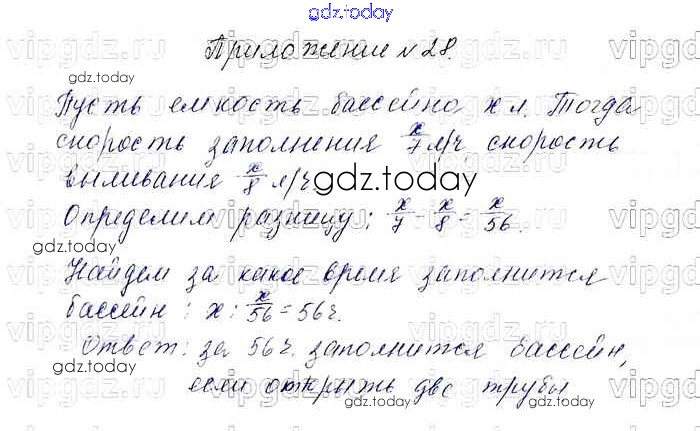 gdz.today
Приложение №28.
gdz.today
Пусть емкость бассейна x л. Тогда
скорость заполнения x/7 л/ч скорость
выливания x/8 л/ч
gdz.today
Определим разницу: x/7 - x/8 = x/56.
gdz.today
gdz.today
Найдем за какое время заполнится
бассейн: x : x/56 = 56 ч.
Ответ: за 56 ч. заполнится бассейн,
gdz.today
если открыть две трубы
gdz.today